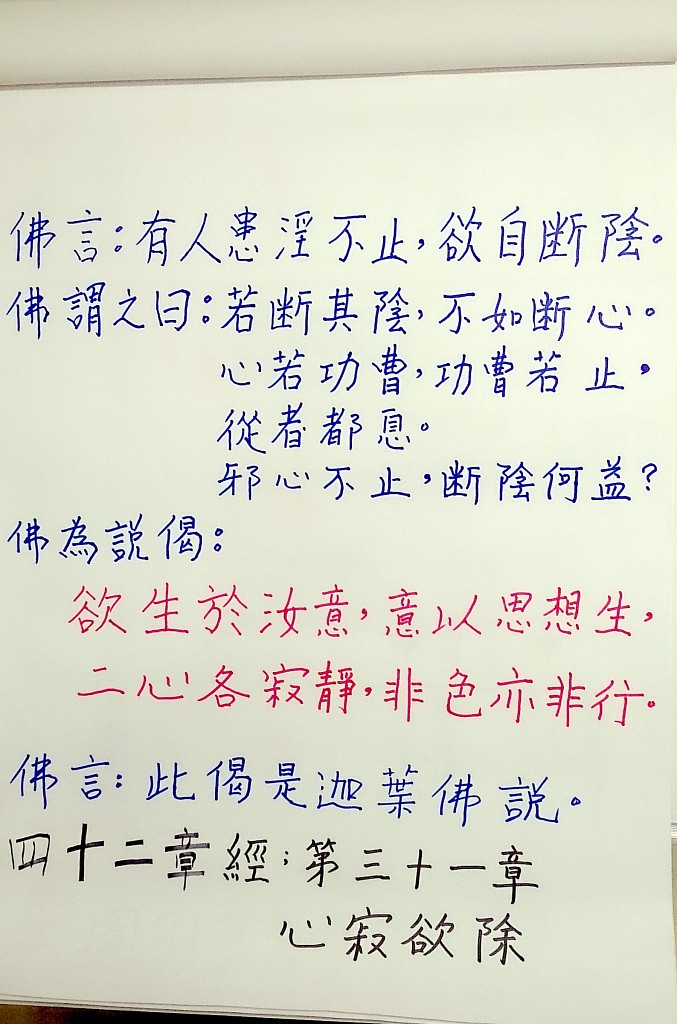 佛言：有人患淫不止，欲自断陰。
佛謂之曰：若断其陰，不如断心。
心若功曹，功曹若止，
從者都息。
邪心不止，断陰何益？
佛為説偈：
欲生於汝意，意以思想生，
二心各寂靜，非色亦非行。
佛言：此偈是迦葉佛説。
四十二章經；第三十一章
心寂欲除